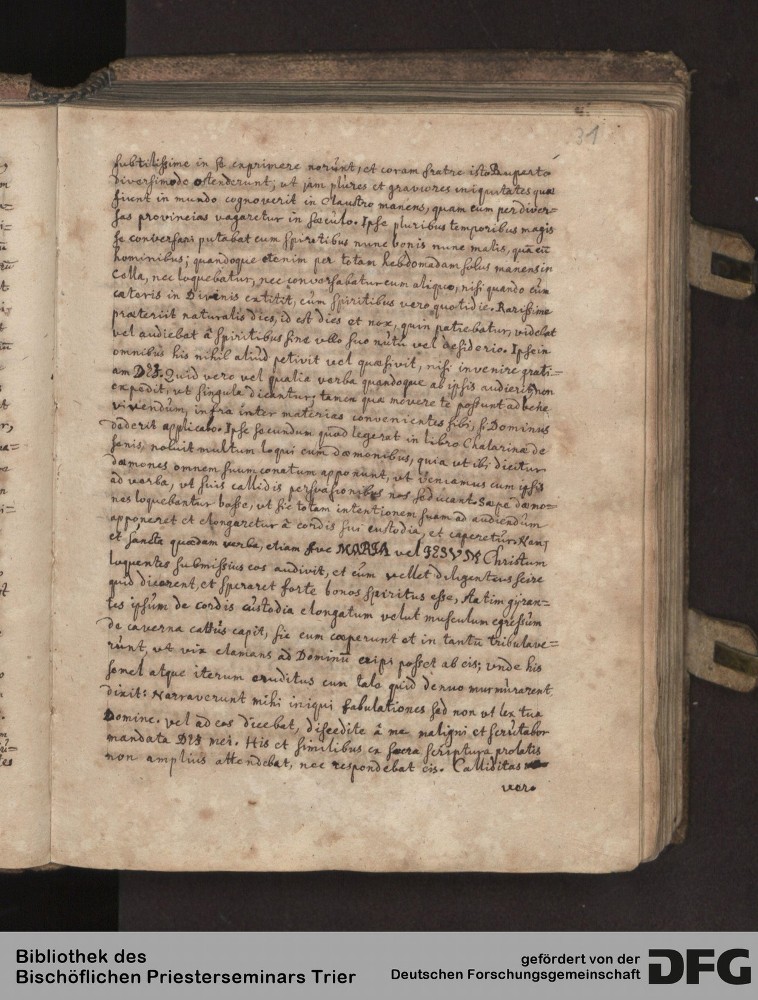 31
subtilissime in se exprimere norunt, et coram fratre isto Ruperto
diversimode ostenderunt; ut jam plures et graviores iniquitates quæ
fiunt in mundo cognoverit in Claustro manens, quam cum per diver=
sas provincias vagaretur in sæculo. Ipse pluribus temporibus magis
se conversari putabat cum spiritibus nunc bonis nunc malis, quā cū
hominibus; quandoque etenim per totam hebdomadam solus manens in
Cella, nec loquebatur, nec conversabatur cum aliquo, nisi quando cūm
cæteris in Divinis extitit, cūm spiritibus vero quotidie. Rarissime
præteriit naturalis dies, id est dies et nox, quin patiebatur, videbat
vel audiebat â spiritibus sine ullo suo nutu vel desiderio. Ipse in
omnibus his nihil aliud petivit vel quæsivit, nisi invenire grati=
am DEI. Quid vero vel qualia verba quandoque ab ipsis audierit, non
expedit, ut singula dicantur, tamen quæ movere te possunt ad bene
vivendum, infra inter materias convenientes sibi, si Dominus
dederit applicabo. Ipse secundum quod legerat in libro Chatarinæ de
senis, noluit multum loqui cum dæmonibus, quia ut ibi dicitur
dæmones omnem suum conatum apponunt, ut veniamus cum ipsis
ad verba, ut suis callidis persuasionibus nos seducant. Sæpe dæmo=
nes loquebantur basse, ut sic totam intentionem suam ad audiendum
apponeret et elongaretur â cordis sui custodia, et caperetur. Nam
et sancta quædam verba, etiam Ave MARIA vel JESUM Christum
loquentes submissius eos audivit, et cūm vellet diligentius scire
quid dicerent, et speraret forte bonos spiritus esse, statim gyran=
tes ipsum de cordis custodia elongatum velut musculum egressum
de caverna cattus capit, sic eum cæperunt et in tantū tribulave=
runt, ut vix clamans ad Dominū eripi posset ab eis; unde his
semel atque iterum eruditus cum tale quid denuo murmurarent
dixit: Narraverunt mihi iniqui fabulationes sed non ut lex tua
Domine. vel ad eos dicebat, discedite â me maligni et scrutabor
mandata DEI mei. His et similibus ex sacra scriptura prolatis
non amplius attendebat, nec respondebat eis. Calliditas
vero
Bibliothek des
Bischöflichen Priesterseminars Trier
gefördert von der
Deutschen Forschungsgemeinschaft
DFG